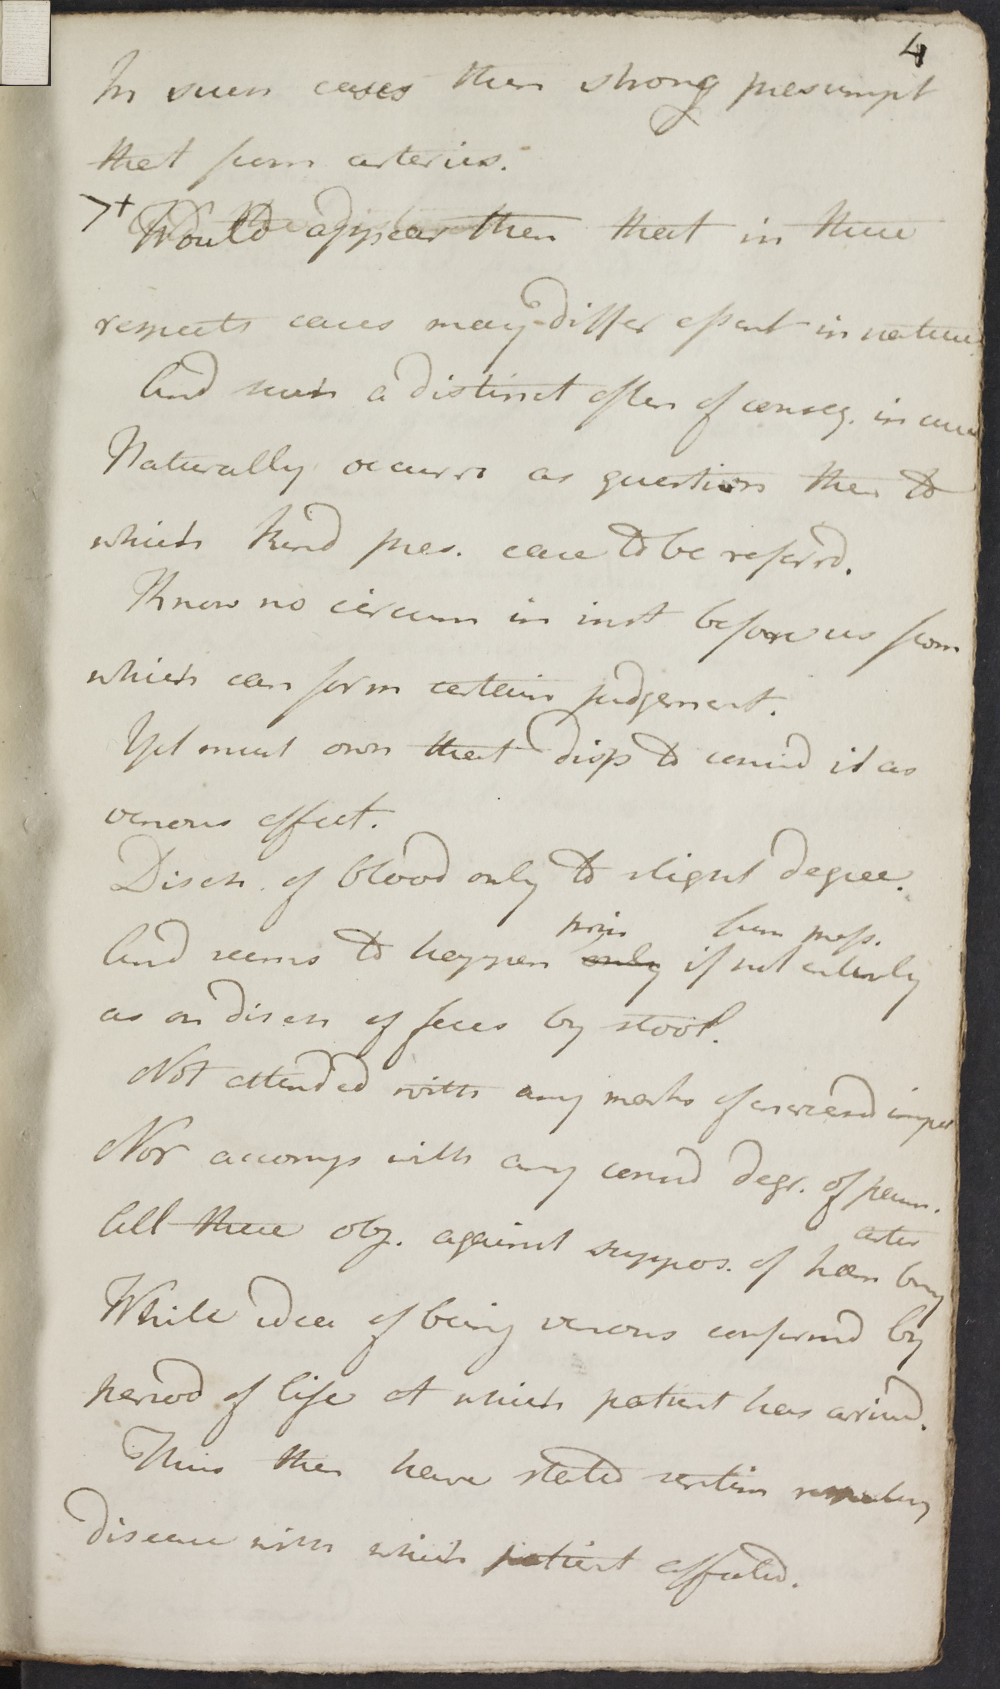 4
In such cases then strong presumpt
that from arteries.
Would appear then that in these
respects cases may differ essent in nature
And such a distinct often of conseq. in cure
Naturally occurrs as question then to
which kind pres. case to be referrd.
Know no circum in inst before us from
which can form certain judgement.
Yet must own that disp to consid it as
venous effect.
Disch. of blood only to slight degree.
And seems to happen only if not entirely
as on disch of feces by stool.
Not attended with any marks of increasd impet
Nor accomp with any consid degr. of pain.
arter
All these obj. against suppos. of hæm being
While idea of being venous confirmd by
period of life at which patient has arrivd.
Thus then have stated sentim
disease with which patient affected.